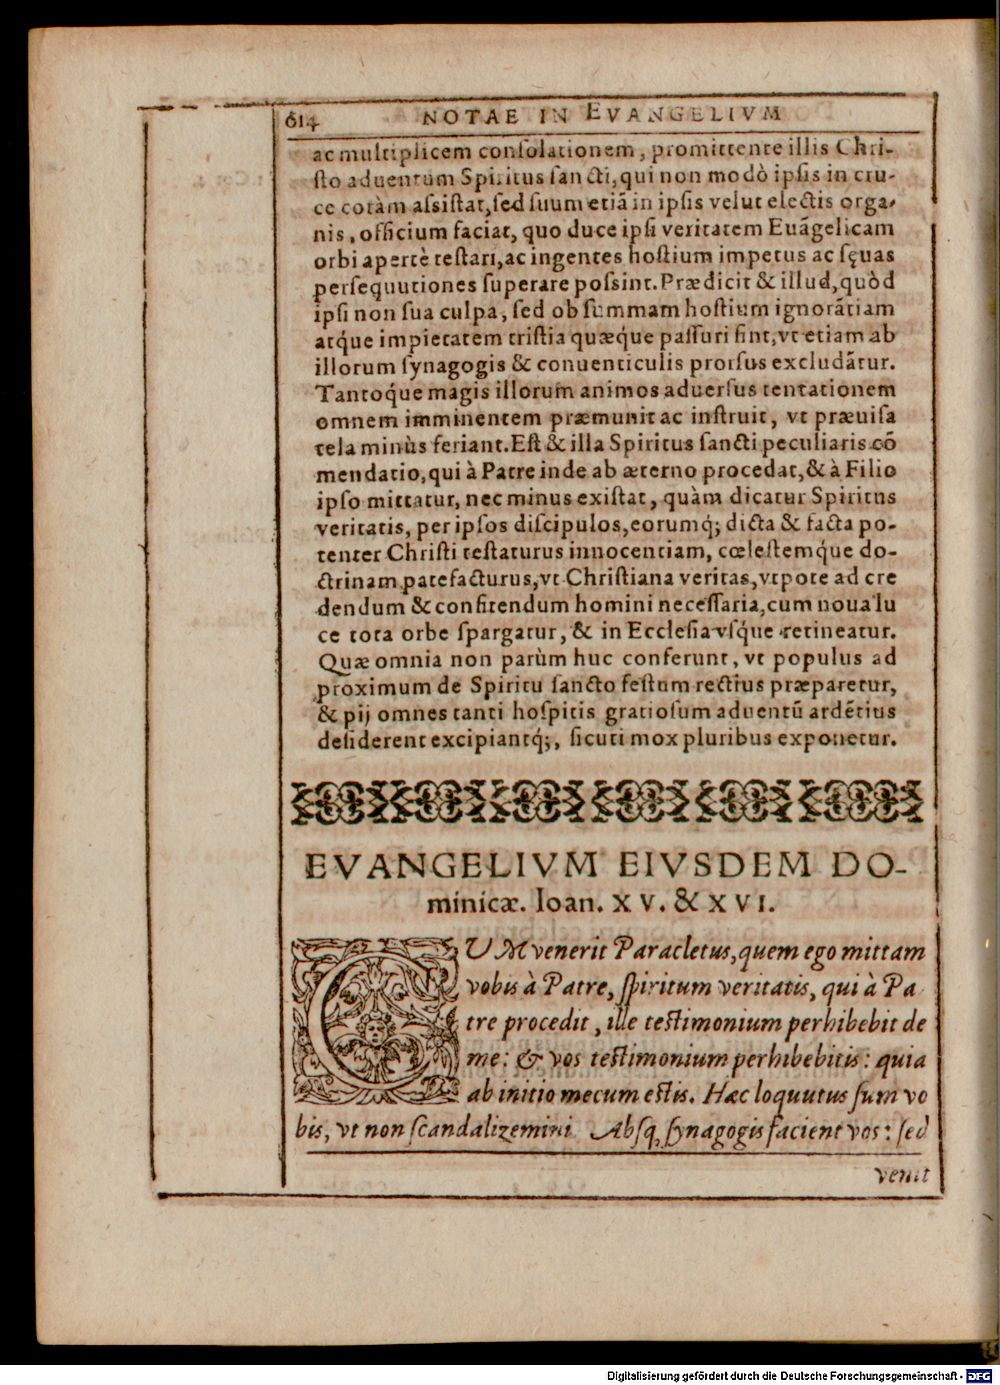 614 NOTAE IN EVANGELIVM
ac multiplicem conſolationem, promittente illis Chri-
ſto aduentum Spiritus ſancti, qui non modò ipſis in cru-
ce coràm aſsiſtat, ſed ſuum etiā in ipſis velut electis orga-
nis, officium faciat, quo duce ipſi veritatem Euāgelicam
orbi apertè teſtari, ac ingentes hoſtium impetus ac ſęuas
perſequutiones ſuperare poſsint. Prædicit & illud, quòd
ipſi non ſua culpa, ſed ob ſummam hoſtium ignorātiam
atq́ue impietatem triſtia quæque paſſuri ſint, vt etiam ab
illorum ſynagogis & conuenticulis prorſus excludātur.
Tantoq́ue magis illorum animos aduerſus tentationem
omnem imminentem præmunit ac inſtruit, vt præuiſa
tela minùs feriant. Eſt & illa Spiritus ſancti peculiaris cō
mendatio, qui à Patre inde ab æterno procedat, & à Filio
ipſo mittatur, nec minus exiſtat, quàm dicatur Spiritus
veritatis, per ipſos diſcipulos, eorumq́; dicta & facta po-
tenter Chriſti teſtaturus innocentiam, cœleſtemq́ue do-
ctrinam patefacturus, vt Chriſtiana veritas, vtpote ad cre
dendum & confitendum homini neceſſaria, cum noua lu
ce tota orbe ſpargatur, & in Eccleſia vſq́ue retineatur.
Quæ omnia non parùm huc conferunt, vt populus ad
proximum de Spiritu ſancto feſtum rectius præparetur,
& pij omnes tanti hoſpitis gratioſum aduentū ardētius
deſiderent excipiantq́;, ſicuti mox pluribus exponetur.
EVANGELIVM EIVSDEM DO-
minicæ. Ioan. XV. & XVI.
CUM venerit Paracletus, quem ego mittam
vobis à Patre, ſpiritum veritatis, qui à Pa
tre procedit, ille teſtimonium perhibebit de
me: & vos teſtimonium perhibebitis: quia
ab initio mecum eſtis. Hæc loquutus ſum vo
bis, vt non ſcandalizemini. Abſq, ſynagogis facient vos: ſed
venit
Digitalisierung gefördert durch die Deutsche Forschungsgemeinschaft - DFG